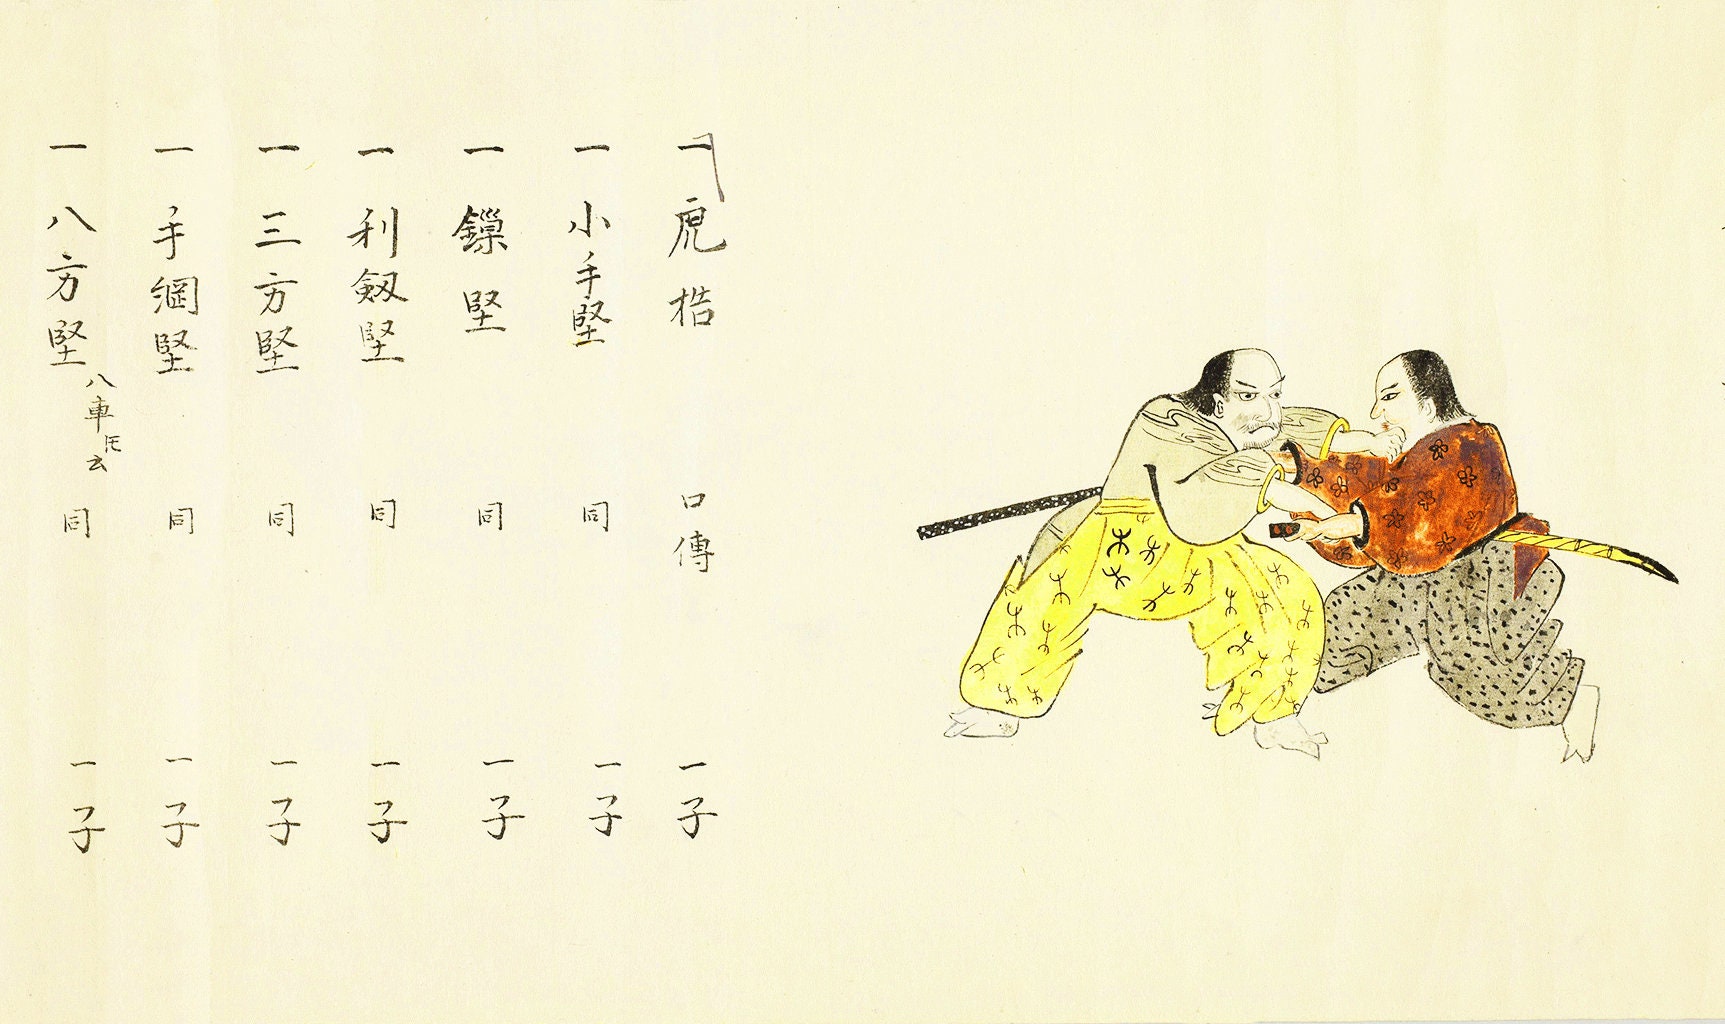 一虎梏 口傳 一子
一小手堅 同 一子
一鏁堅 同 一子
一利劔堅 同 一子
一三方堅 同 一子
一手綱堅 同 一子
一八方堅 八車圧云 同 一子